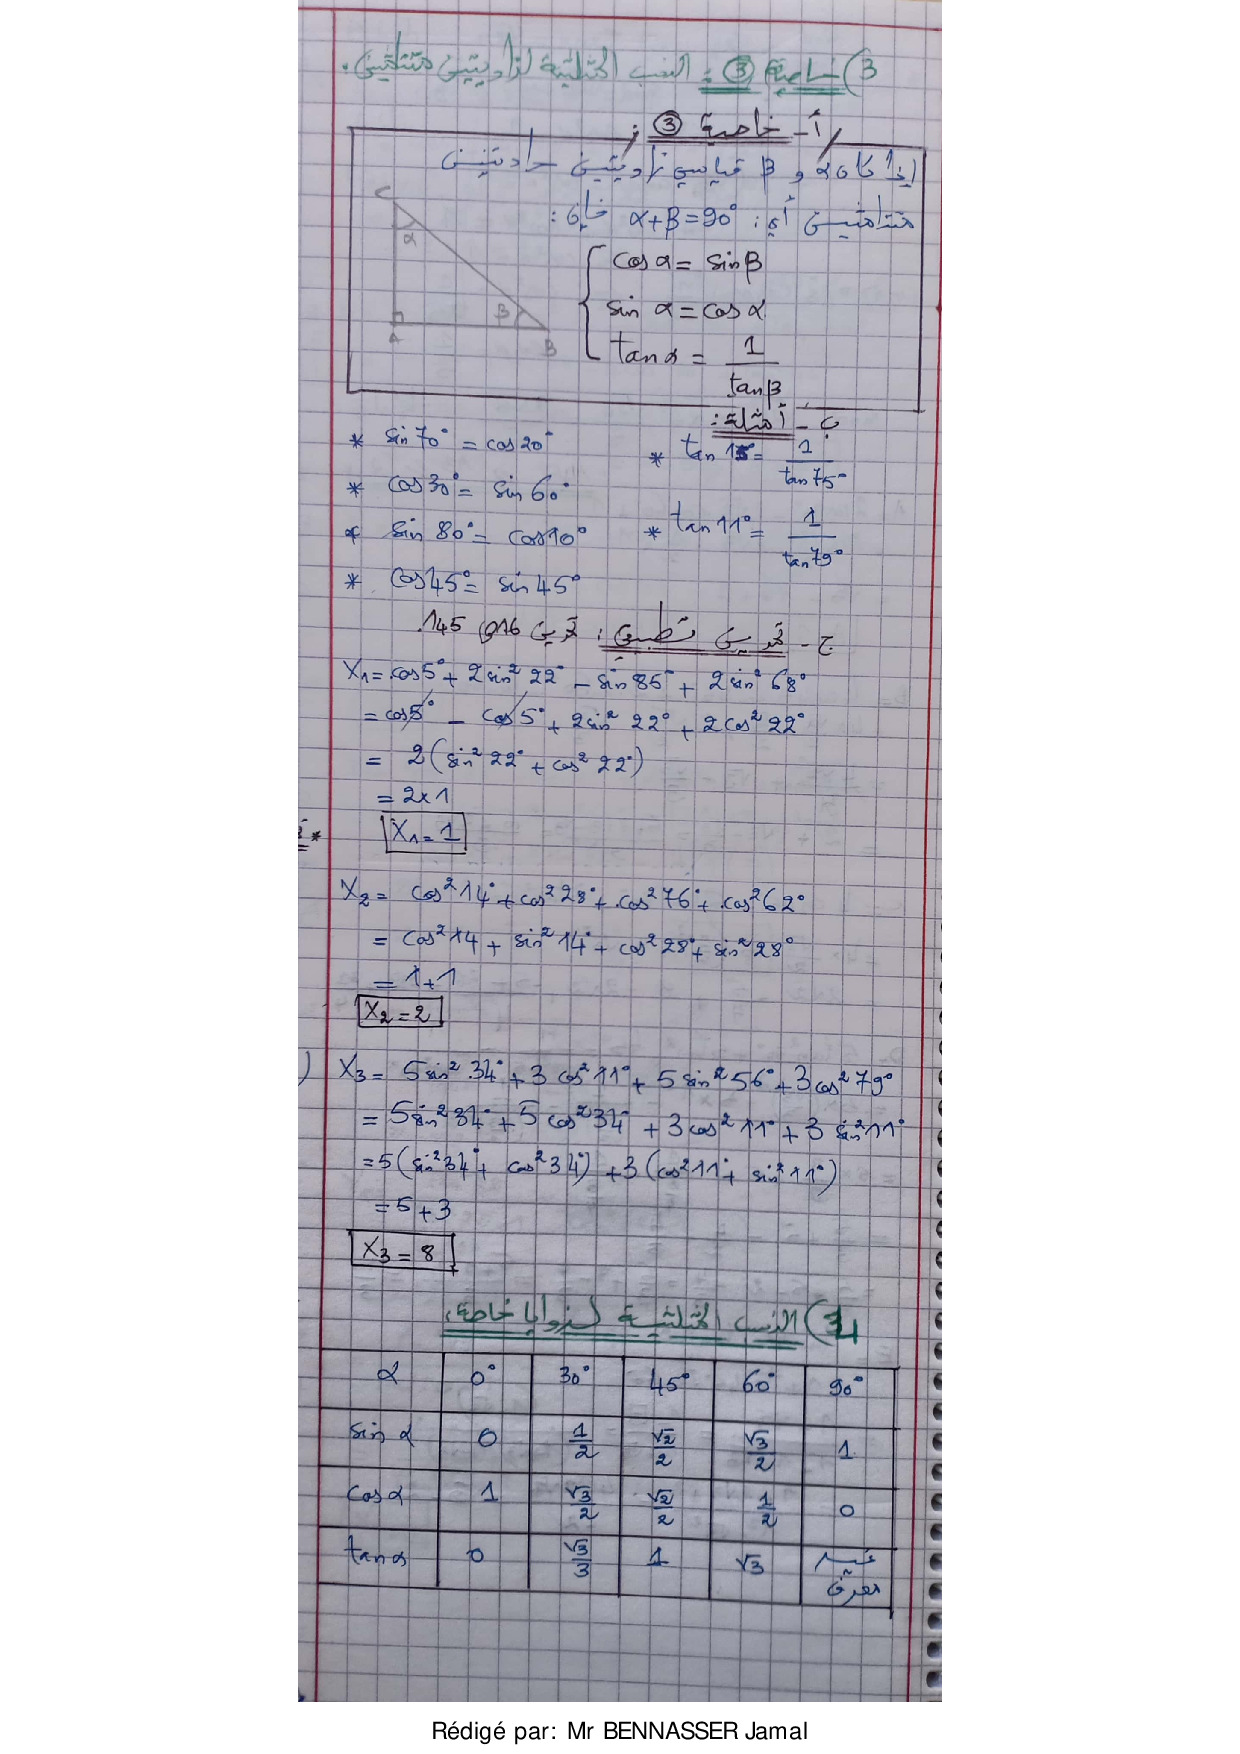 3) خاصية ③ : النسب المثلثية لزاويتين متتامتين.
أ- خاصية ③ :
إذا كان α و β قياسي زاويتين حادتين
متتامتين أي : α+β=90° فإن :
cos α = sin β
sin α = cos α
tan α = 1/tan β
C
α
β
A
B
ب - أمثلة :
* sin 70° = cos 20°
* tan 15° = 1/tan 75°
* cos 30° = sin 60°
* sin 80° = cos 10°
* tan 11° = 1/tan 79°
* cos 45° = sin 45°
ج - تمرين تطبيقي : تمرين 16 ص 145.
X₁ = cos 5° + 2 sin² 22° - sin 85° + 2 sin² 68°
= cos 5° - cos 5° + 2 sin² 22° + 2 cos² 22°
= 2(sin² 22° + cos² 22°)
= 2×1
X₁ = 1
X₂ = cos² 14° + cos² 28° + cos² 76° + cos² 62°
= cos² 14 + sin² 14° + cos² 28° + sin² 28°
= 1+1
X₂ = 2
X₃ = 5 sin² 34° + 3 cos² 11° + 5 sin² 56° + 3 cos² 79°
= 5 sin² 34° + 5 cos² 34° + 3 cos² 11° + 3 sin² 11°
= 5(sin² 34° + cos² 34°) + 3(cos² 11° + sin² 11°)
= 5+3
X₃ = 8
4) النسب المثلثية لزوايا خاصة :
α 0° 30° 45° 60° 90°
sin α 0 1/2 √2/2 √3/2 1
cos α 1 √3/2 √2/2 1/2 0
tan α 0 √3/3 1 √3 غير معرف
Rédigé par: Mr BENNASSER Jamal